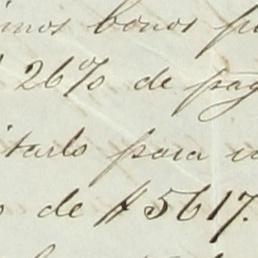 imos bonos p
26% de pag
itarlo para
o de $5617.